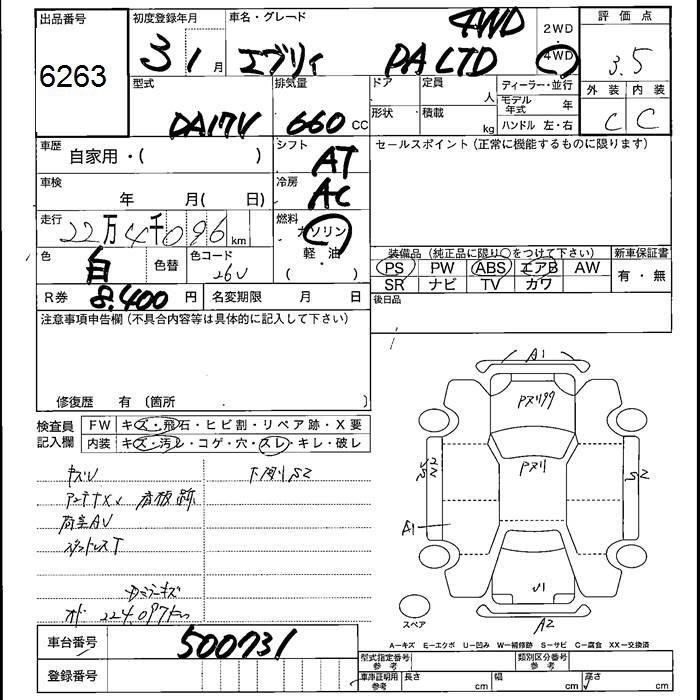 出品番号 初度登録年月 車名・グレード 4WD 2WD 評価点
6263 31 月 エブリィ PA LTD ・4WD 3.5
型式 排気量 ドア 定員 人 ディーラー・並行 外装 内装
DA17V 660 CC 形状 積載 kg モデル年式 年 C C
ハンドル 左・右
車歴 自家用・( ) シフト AT セールスポイント(正常に機能するものに限ります)
車検 年 月( 日) 冷房 AC
走行 22万4千096 km 燃料 ガソリン
軽・油
( ・ )
色 白 色替 色コード 26U 装備品(純正品に限り○をつけて下さい) 新車保証書
PS PW ABS エアB AW 有・無
SR ナビ TV カワ
R券 8.400 円 名変期限 月 日 後日品
注意事項申告欄(不具合内容等は具体的に記入して下さい)
修復歴 有(箇所 )
検査員記入欄 FW キズ・飛石・ヒビ割・リペア跡・X要
内装 キズ・汚レ・コゲ・穴・スレ・キレ・破レ
荷室AU
スタッドレスT
224.097km
A1
U2
S2
S2
A1
U1
A2
スペア
A-キズ E-エクボ U-凹み W-補修跡 S-サビ C-腐食 XX-交換済
車台番号 500731 型式指定番号 参考 類別区分番号 参考
登録番号 車庫証明用 参考 長さ cm 幅 cm 高さ cm